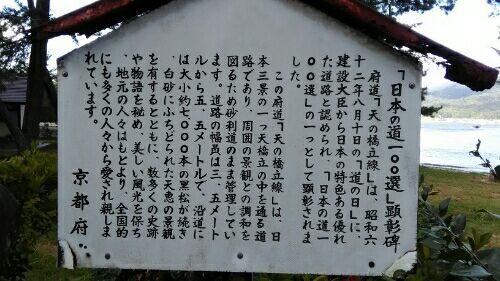 「日本の道一〇〇選」顕彰碑
府道「天の橋立線」は、昭和六
十二年八月十日の「道の日」に、
建設大臣から日本の特色ある優れ
た道路と認められ、「日本の道一
〇〇選」の一つとして顕彰されま
した。
この府道「天の橋立線」は、日
本三景の一つ天橋立の中を通る道
路であり、周囲の景観との調和を
図るため砂利道のまま管理してい
ます。道路の幅員は三.五メート
ルから五.五メートルで、沿道に
は大小約七〇〇〇本の黒松が続き
、白砂にふちどられた天恵の景観
を有するとともに、数多くの史跡
や物語を秘め、美しい風光を保ち
、地元の人々はもとより、全国的
にも多くの人々から愛され親しま
れています。
京都府